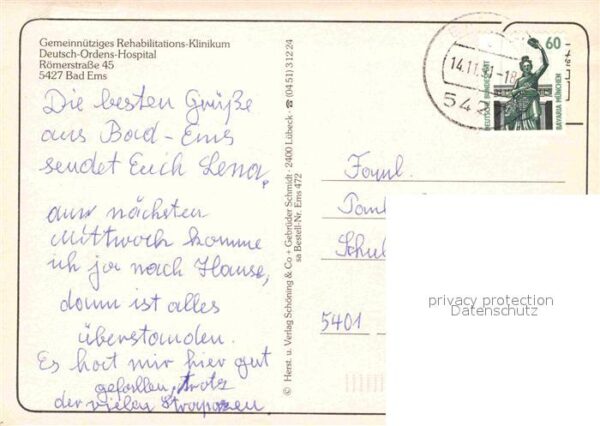 Gemeinnütziges Rehabilitations-Klinikum
Deutsch-Ordens-Hospital
Römerstraße 45
5427 Bad Ems
Die besten Grüße
aus Bad-Ems
sendet Euch Lena,
am nächsten
Mittwoch komme
ich ja nach Hause,
dann ist alles
überstanden.
Es hat mir hier gut
gefallen, trotz
der vielen Strapazen
© Herst. u. Verlag Schöning & Co + Gebrüder Schmidt · 2400 Lübeck · ☎ (04 51) 3 12 24
sa Bestell-Nr. Ems 472
14.11.91-18
542
60
DEUTSCHE BUNDESPOST
BAVARIA MÜNCHEN
Faml.
Paul
Schul
5401
privacy protection
Datenschutz